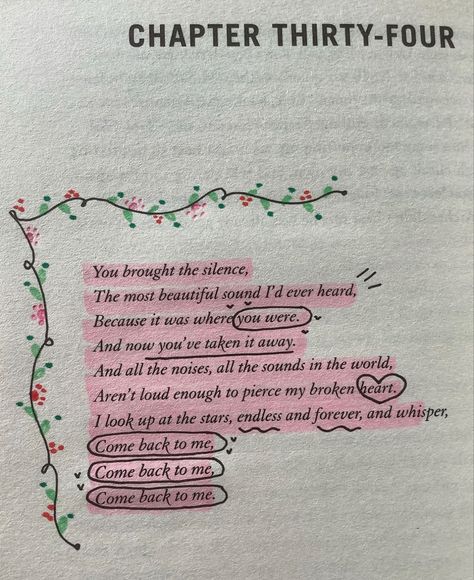 CHAPTER THIRTY-FOUR
You brought the silence,
The most beautiful sound I'd ever heard,
Because it was where you were.
And now you've taken it away.
And all the noises, all the sounds in the world,
Aren't loud enough to pierce my broken heart.
I look up at the stars, endless and forever, and whisper,
Come back to me,
Come back to me,
Come back to me.